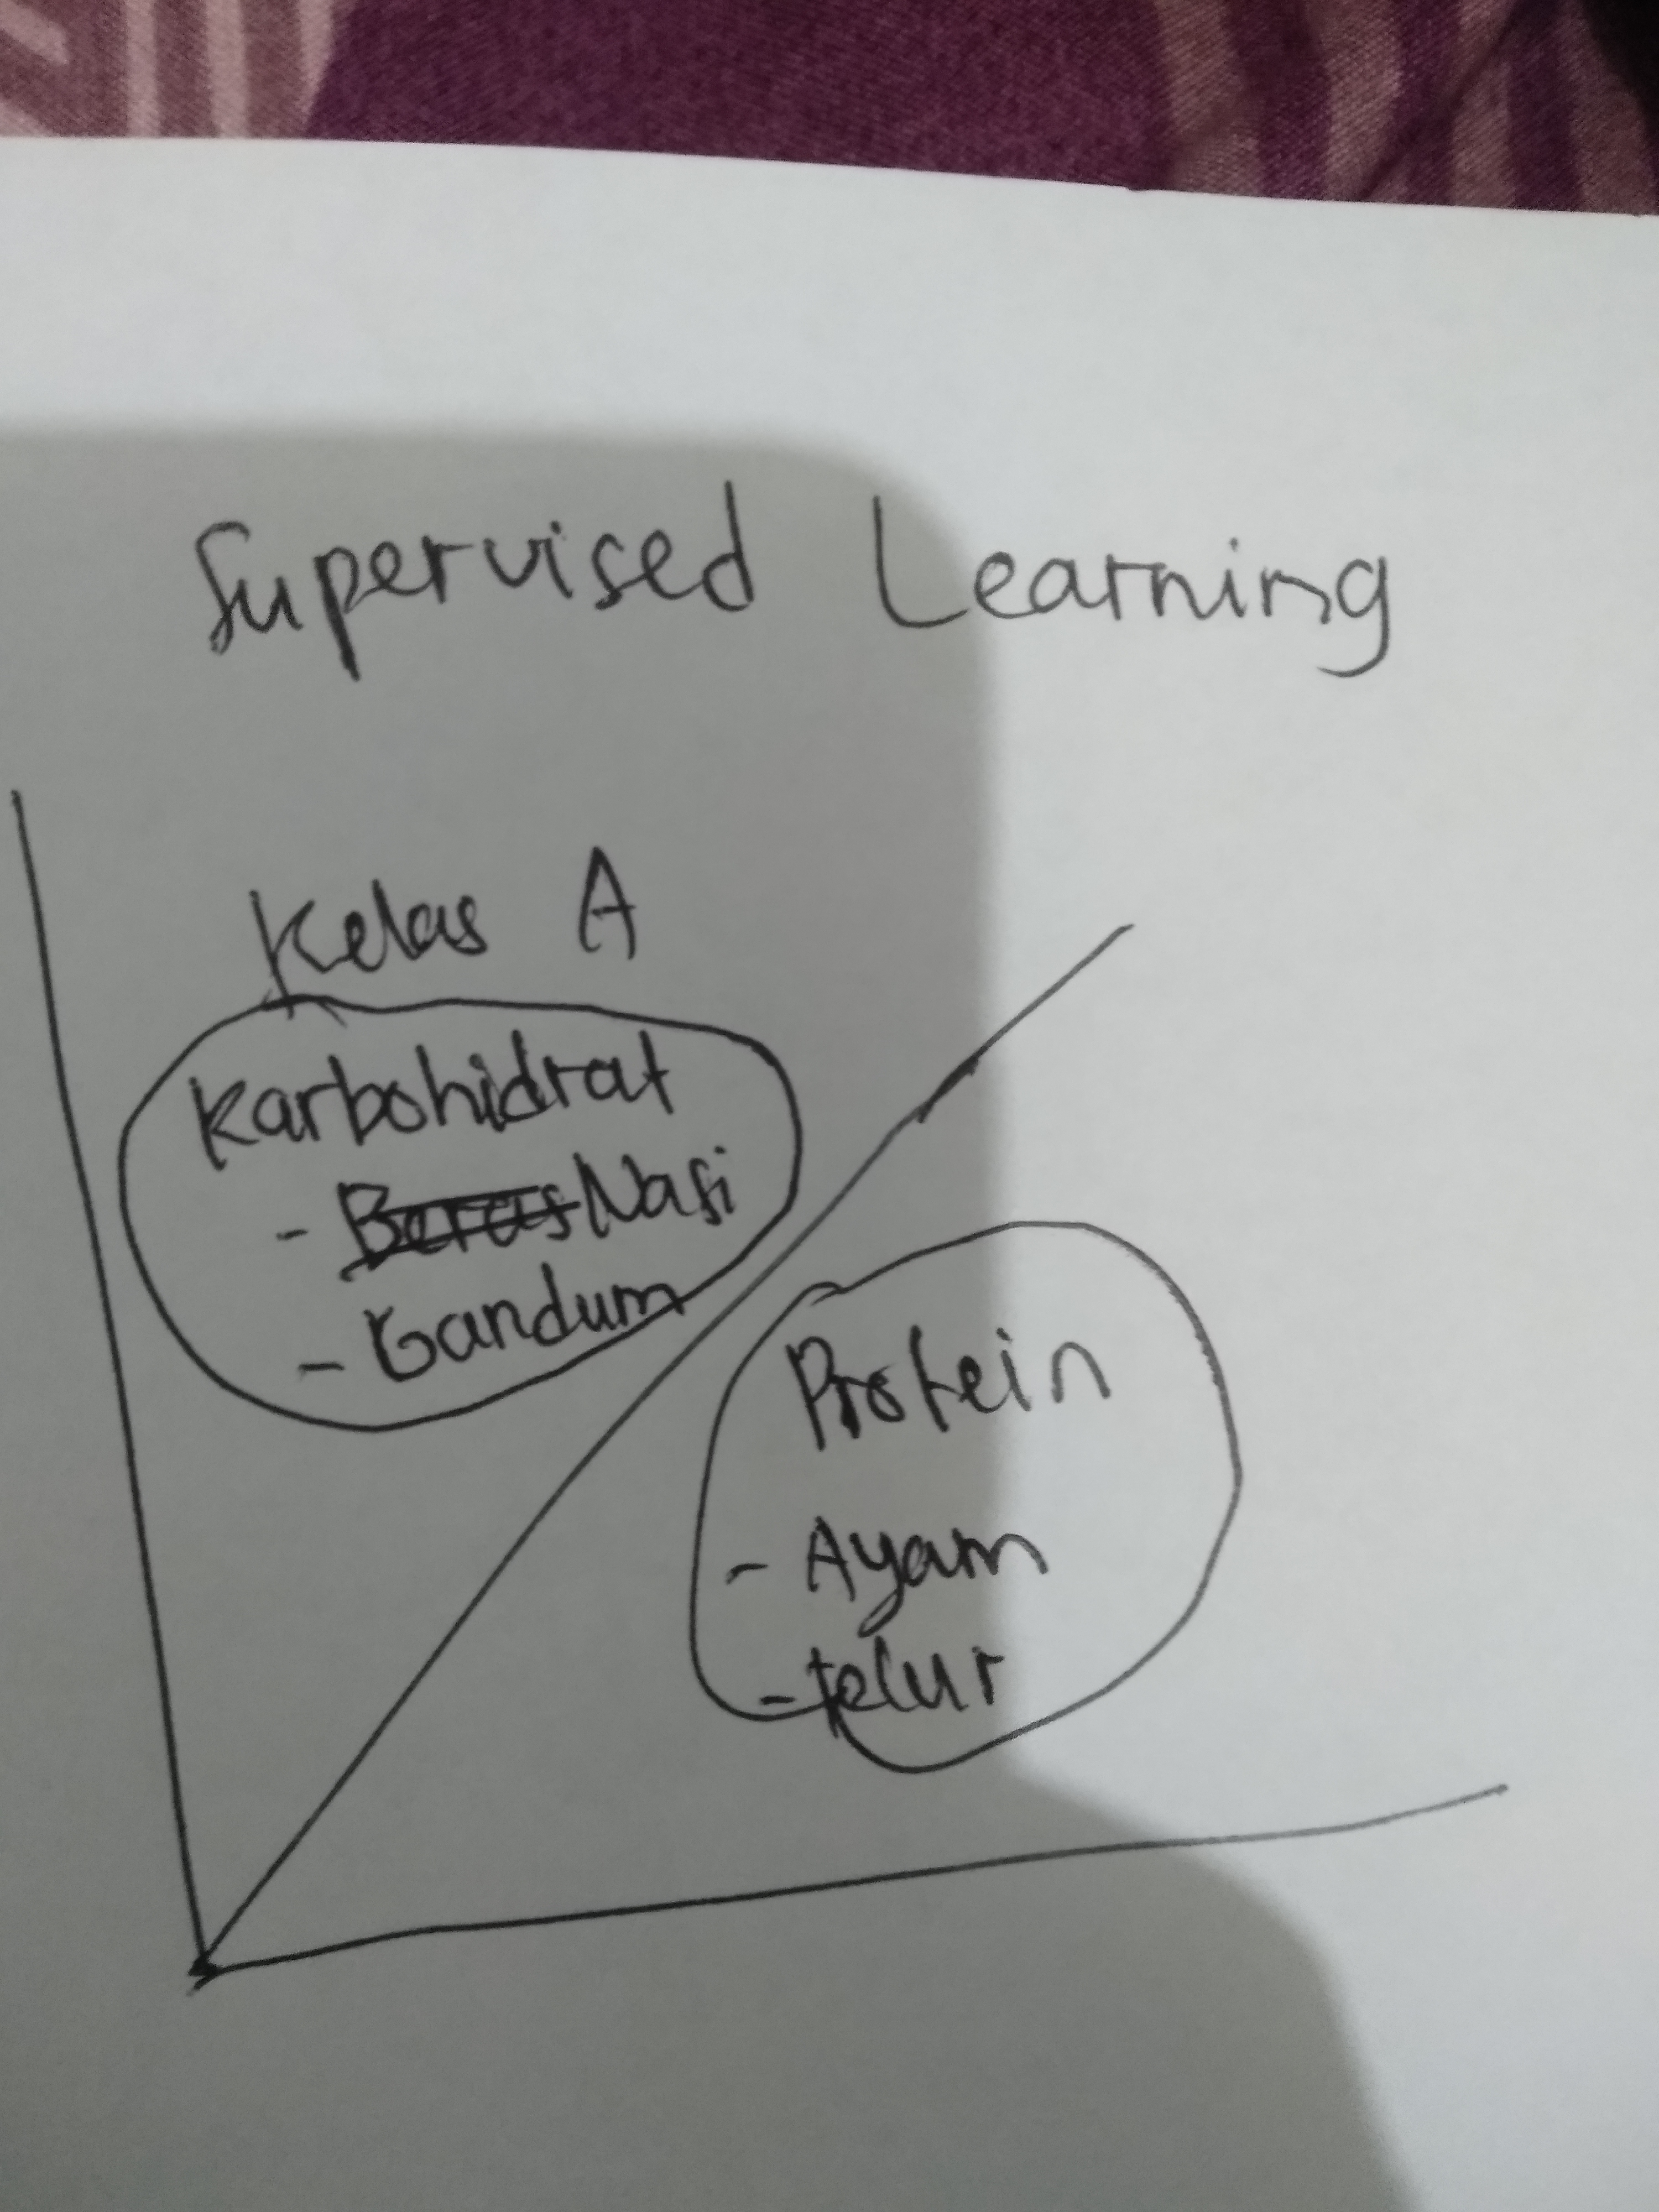 Supervised Learning
Kelas A
Karbohidrat
- Beras Nasi
- Gandum
Protein
- Ayam
- telur